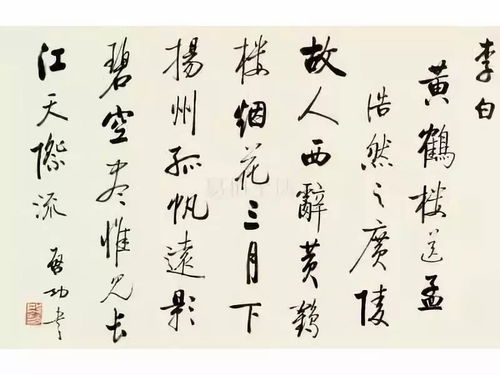 李白
黄鹤楼送孟
浩然之廣陵
故人西辭黄鹤
楼烟花三月下
揚州孤帆遠影
碧空尽惟见长
江天際流
启功书